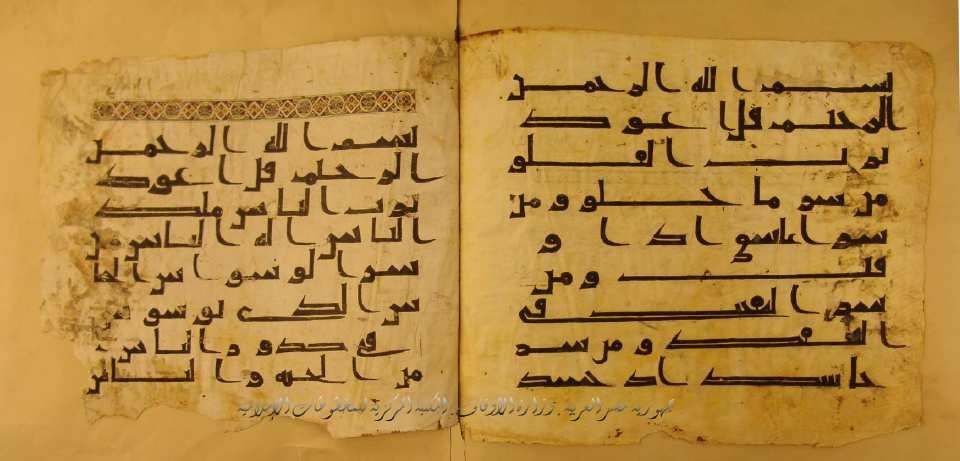 بسم الله الرحمن
الرحيم قل اعوذ
برب الفلق
من شر ما خلق و من
شر غاسق اذا و
قب و من
شر النفثت في
العقد و من شر
حاسد اذا حسد
بسم الله الرحمن
الرحيم قل اعوذ
برب الناس ملك
الناس اله الناس من
شر الوسواس الخنا
س الذي يوسوس
في صدور الناس
من الجنه و الناس
جمهورية مصر العربية . وزارة الأوقاف . المكتبة المركزية للمخطوطات الإسلامية